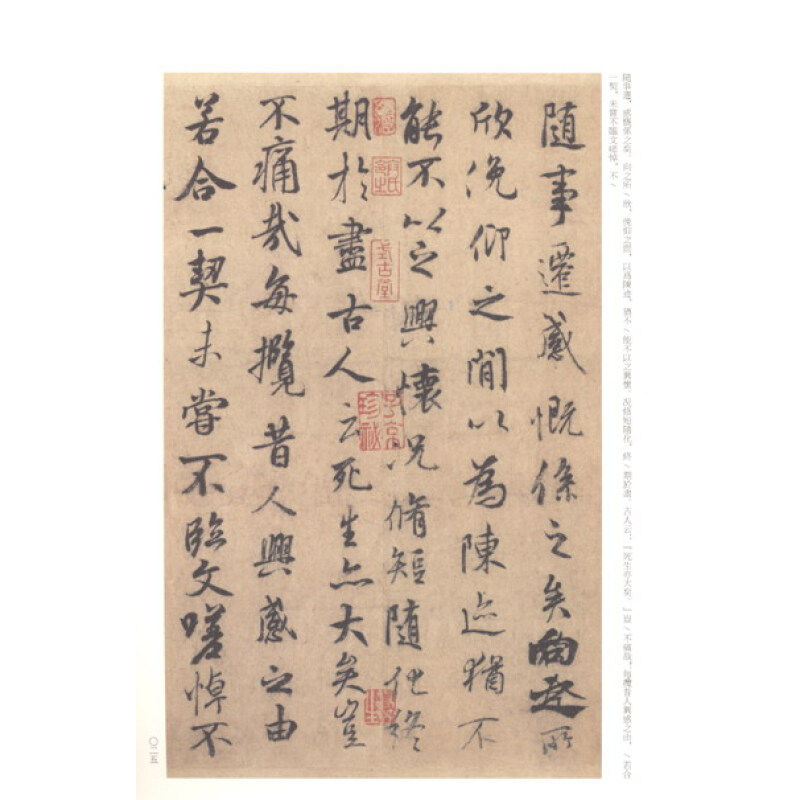 隨事遷，感慨係之矣。向之所／欣，俛仰之間，以爲陳迹，猶不／能不以之興懷，況脩短隨化，終／期於盡。古人云：『死生亦大矣。』豈／不痛哉。每攬昔人興感之由，／若合
一契，未嘗不臨文嗟悼，不／
隨事遷感慨係之矣向之所
欣俛仰之間以為陳迹猶不
能不以之興懷況脩短隨化終
期於盡古人云死生亦大矣豈
不痛哉每攬昔人興感之由
若合一契未嘗不臨文嗟悼不
子京
珍祕
〇二五